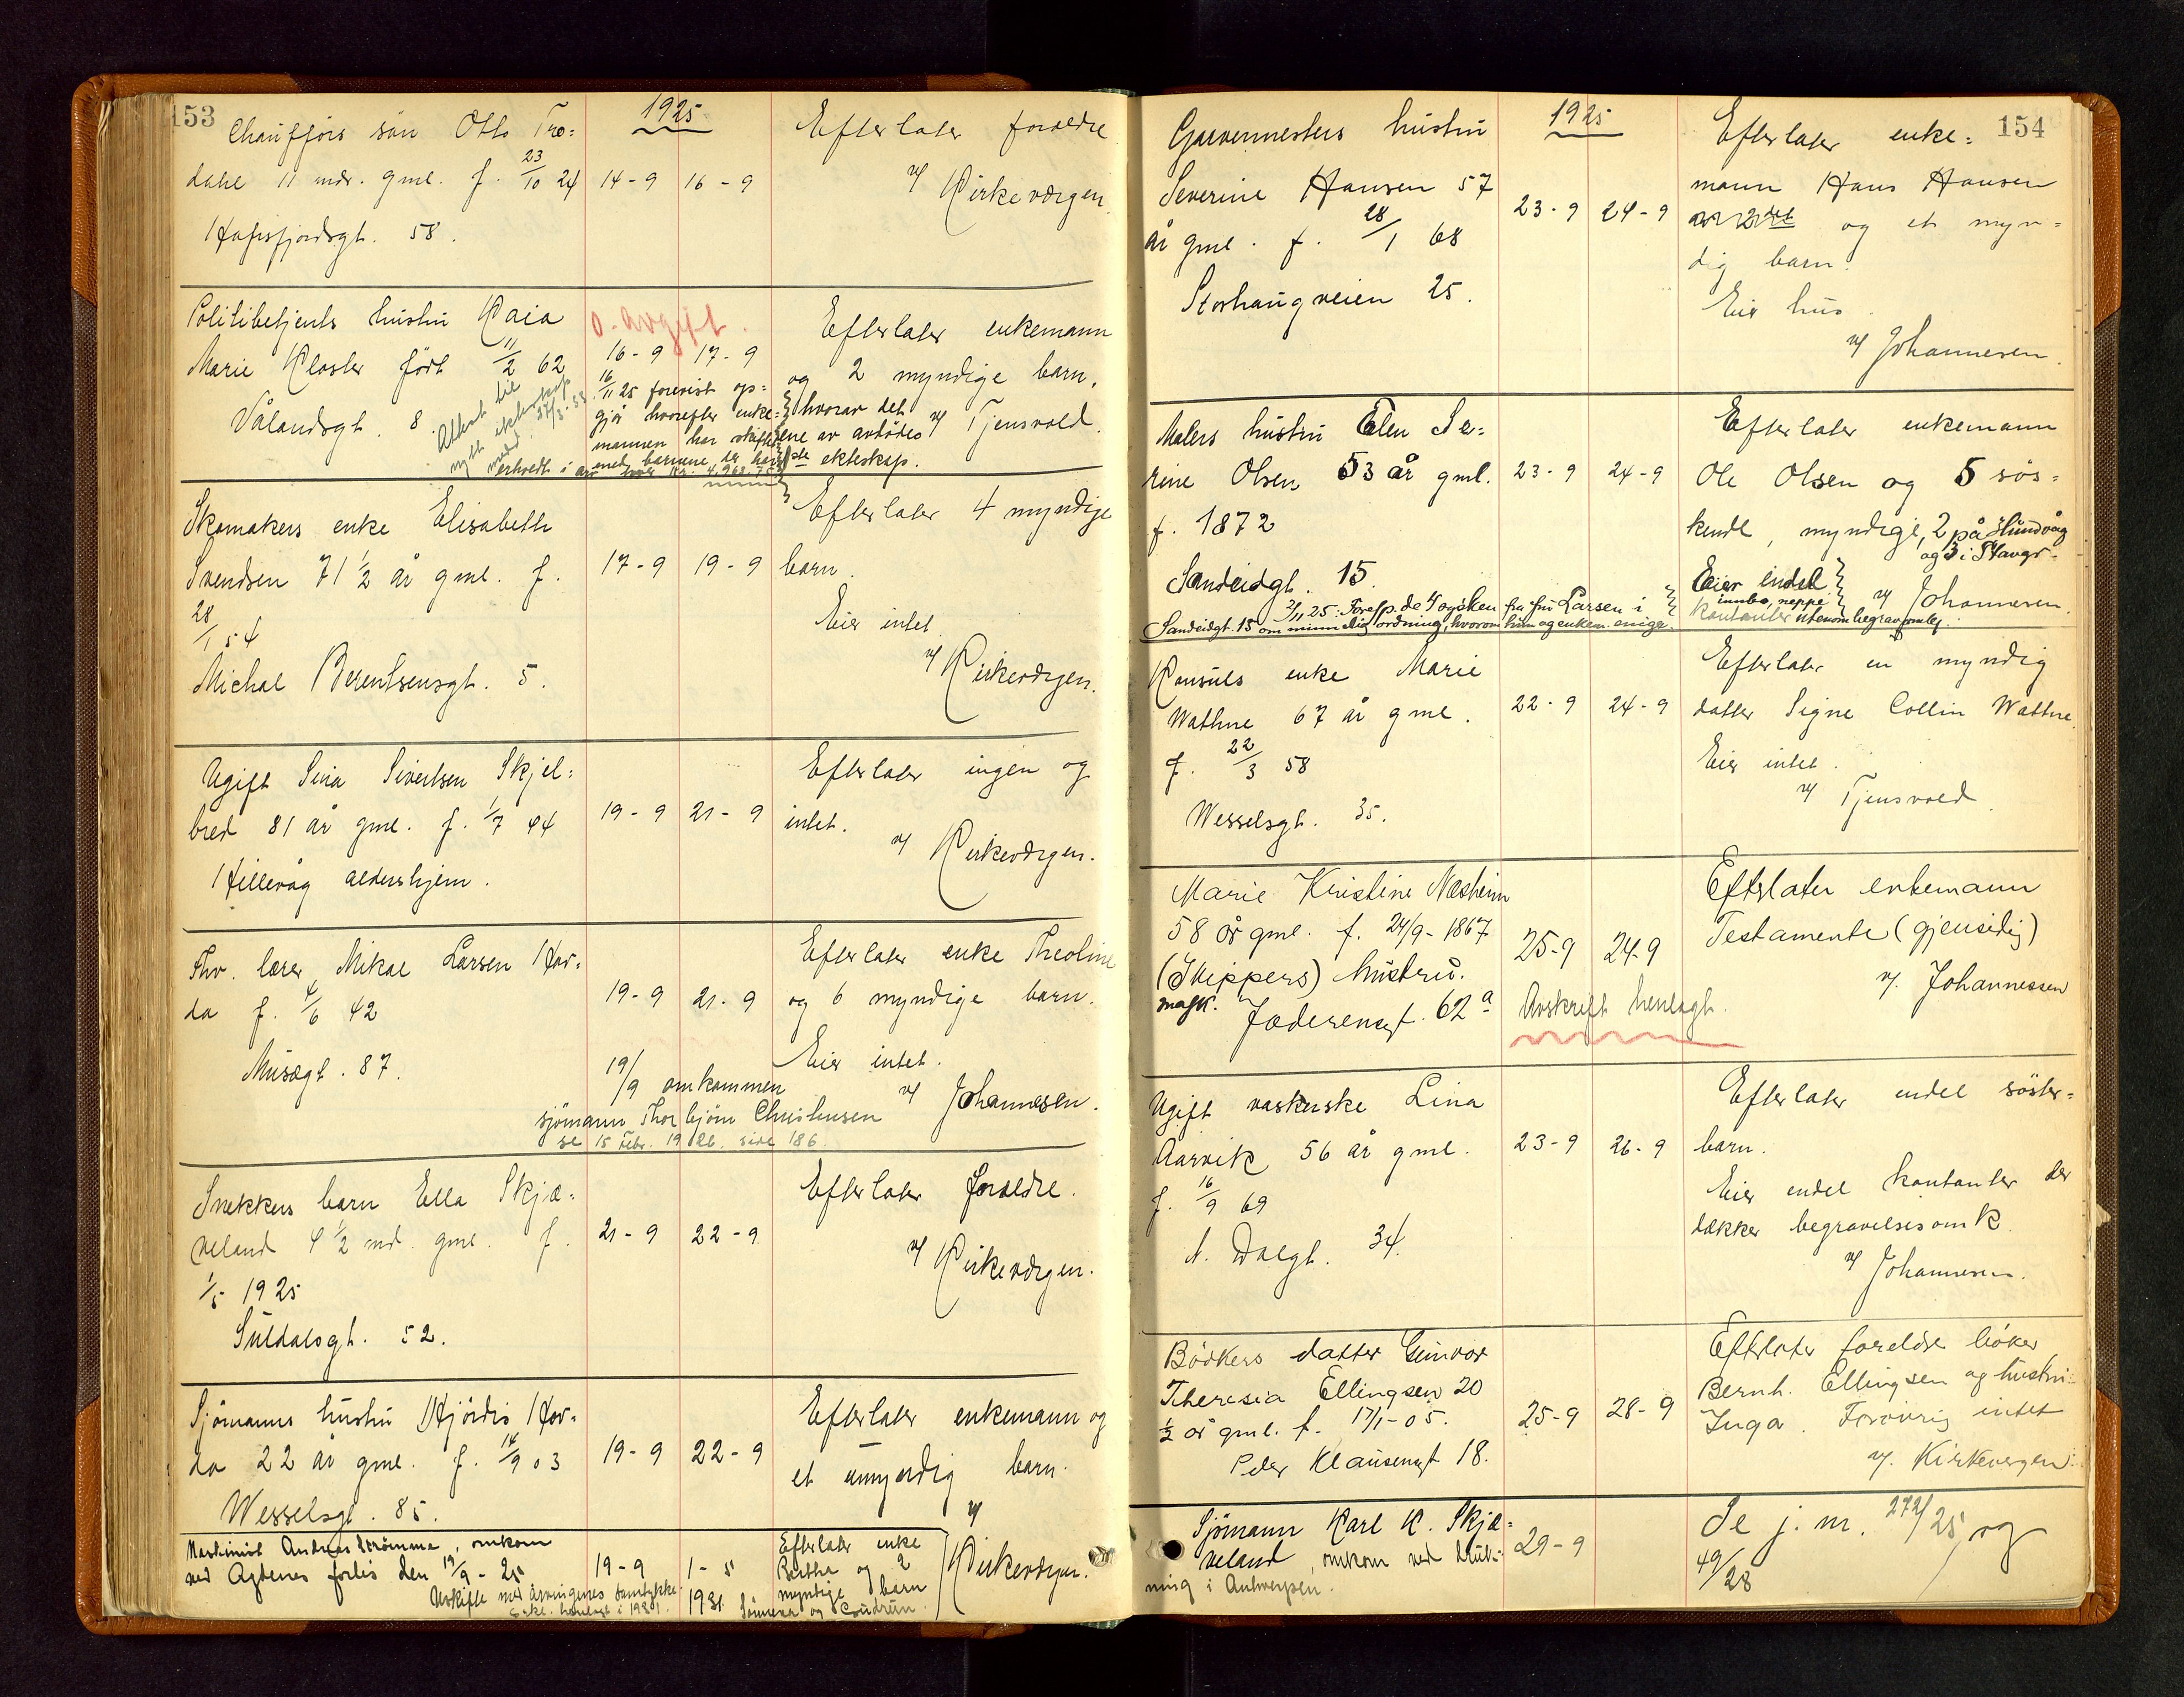 153
1925
Chauffórs sön Otto Tro=
dahl 11 mdr. gml. f. 23/10 24
Hafrsfjordsgt. 58.
14-9 16-9
Efterlater foreldre
v/ Kirkeværgen.
Politibetjents hustru Kaia
Marie Kloster født 11/2 62
Vålandsgt. 8.
Attest til
nytt ekteskap
med 27/3-33.
0. avgift.
16-9 17-9
16/11 25 forevist op=
gjör hvorefter enke=
mannen har skiftet
med barnene der har
erhvedt i arv hver kr. 4.968.75
Efterlater enkemann
og 2 myndige barn,
hvorav det
ene av avdødes
ekteskap.
v/ Tjensvold.
Skomakers enke Elisabeth
Svendsen 71 1/2 år gml. f.
28/1 54
Michal Berentsensgt. 5.
17-9 19-9
Efterlater 4 myndige
barn.
Eier intet
v/ Kirkeværgen.
Ugift Sina Sivertsen Skjel=
bred 81 år gml. f. 1/7 44
Hillevåg aldershjem.
19-9 21-9
Efterlater ingen og
intet.
v/ Kirkeværgen.
Fhv. lærer Mikal Larsen Hov=
da f. 4/6 42
Musægt. 87.
19-9 21-9
Efterlater enke Theoline
og 6 myndige barn.
Eier intet.
v/ Johannesen.
19/9 omkommen
sjömann Thorbjörn Christensen
se 15 Febr. 1926. side 186.
Snekkers barn Ella Skjæ=
veland 4 1/2 md. gml. f.
1/5 1925
Suldalsgt. 52.
21-9 22-9
Efterlater foreldre.
v/ Kirkeværgen.
Sjömanns hustru Hjördis Hov=
da 22 år gml. f. 14/9 03
Wesselsgt. 85.
19-9 22-9
Efterlater enkemann og
et umyndig barn.
v/
Kirkeværgen.
Maskinist Andreas Strömme, omkom
ved Agdenes forlis den 19/9-25
Uskifte med arvingenes samtykke
19-9 1-5
1931.
Efterlater enke
Bertha og 2
myndige barn
og Gudrun.
154
1925
Garvermesters hustru
Severine Hansen 57
år gml. f. 28/1 68
Storhaugveien 25.
23-9 24-9
Efterlater enke=
mann Hans Hansen
og et myn=
dig barn.
Eier hus.
v/ Johannesen.
Malers hustru Elen Se=
rine Olsen 53 år gml.
f. 1872
Sandeidgt. 15.
23-9 24-9
Efterlater enkemann
Ole Olsen og 5 søs=
kende, myndige, 2 på Hundvåg
og 3 i Stavgr.
Eier endel
innbo, neppe
kontanter utenom begravomk.
v/ Johannesen.
2/11 25: Foresp. de 4 søsken fra fru Larsen i
Sandeidgt. 15 om minnelig ordning, hvorom hun og enkem. enige.
Konsuls enke Marie
Wathne 67 år gml.
f. 22/3 58
Wesselsgt. 35.
22-9 24-9
Efterlater en myndig
datter Signe Collin Wathne.
Eier intet.
v/ Tjensvold.
Marie Kristine Næsheim
58 år gml. f. 24/9-1867
(Skippers) hustru.
mask. Jæderensgt. 62 a
25-9 24-9
Avskrift henlagt.
Efterlater enkemann
Testamente (gjensidig)
v/. Johannessen
Ugift vaskerske Lina
Aarvik 56 år gml.
f. 16/9 69
N. Dalgt. 34.
23-9 26-9
Efterlater endel söster=
barn.
Eier endel kontanter der
dækker begravelsesomk.
v/ Johannesen.
Bödkers datter Gunvor
Theresia Ellingsen 20
1/2 år gml. f. 17/1-05.
Peder Klausensgt 18.
25-9 28-9
Efterlater foreldre böker
Bernh. Ellingsen og hustru
Inga. Forövrig intet
v/. Kirkevergen.
Sjömann Karl K. Skjæ=
veland, omkom ved drukn=
ning i Antwerpen.
29-9
Se j. nr. 272/25, og
49/28